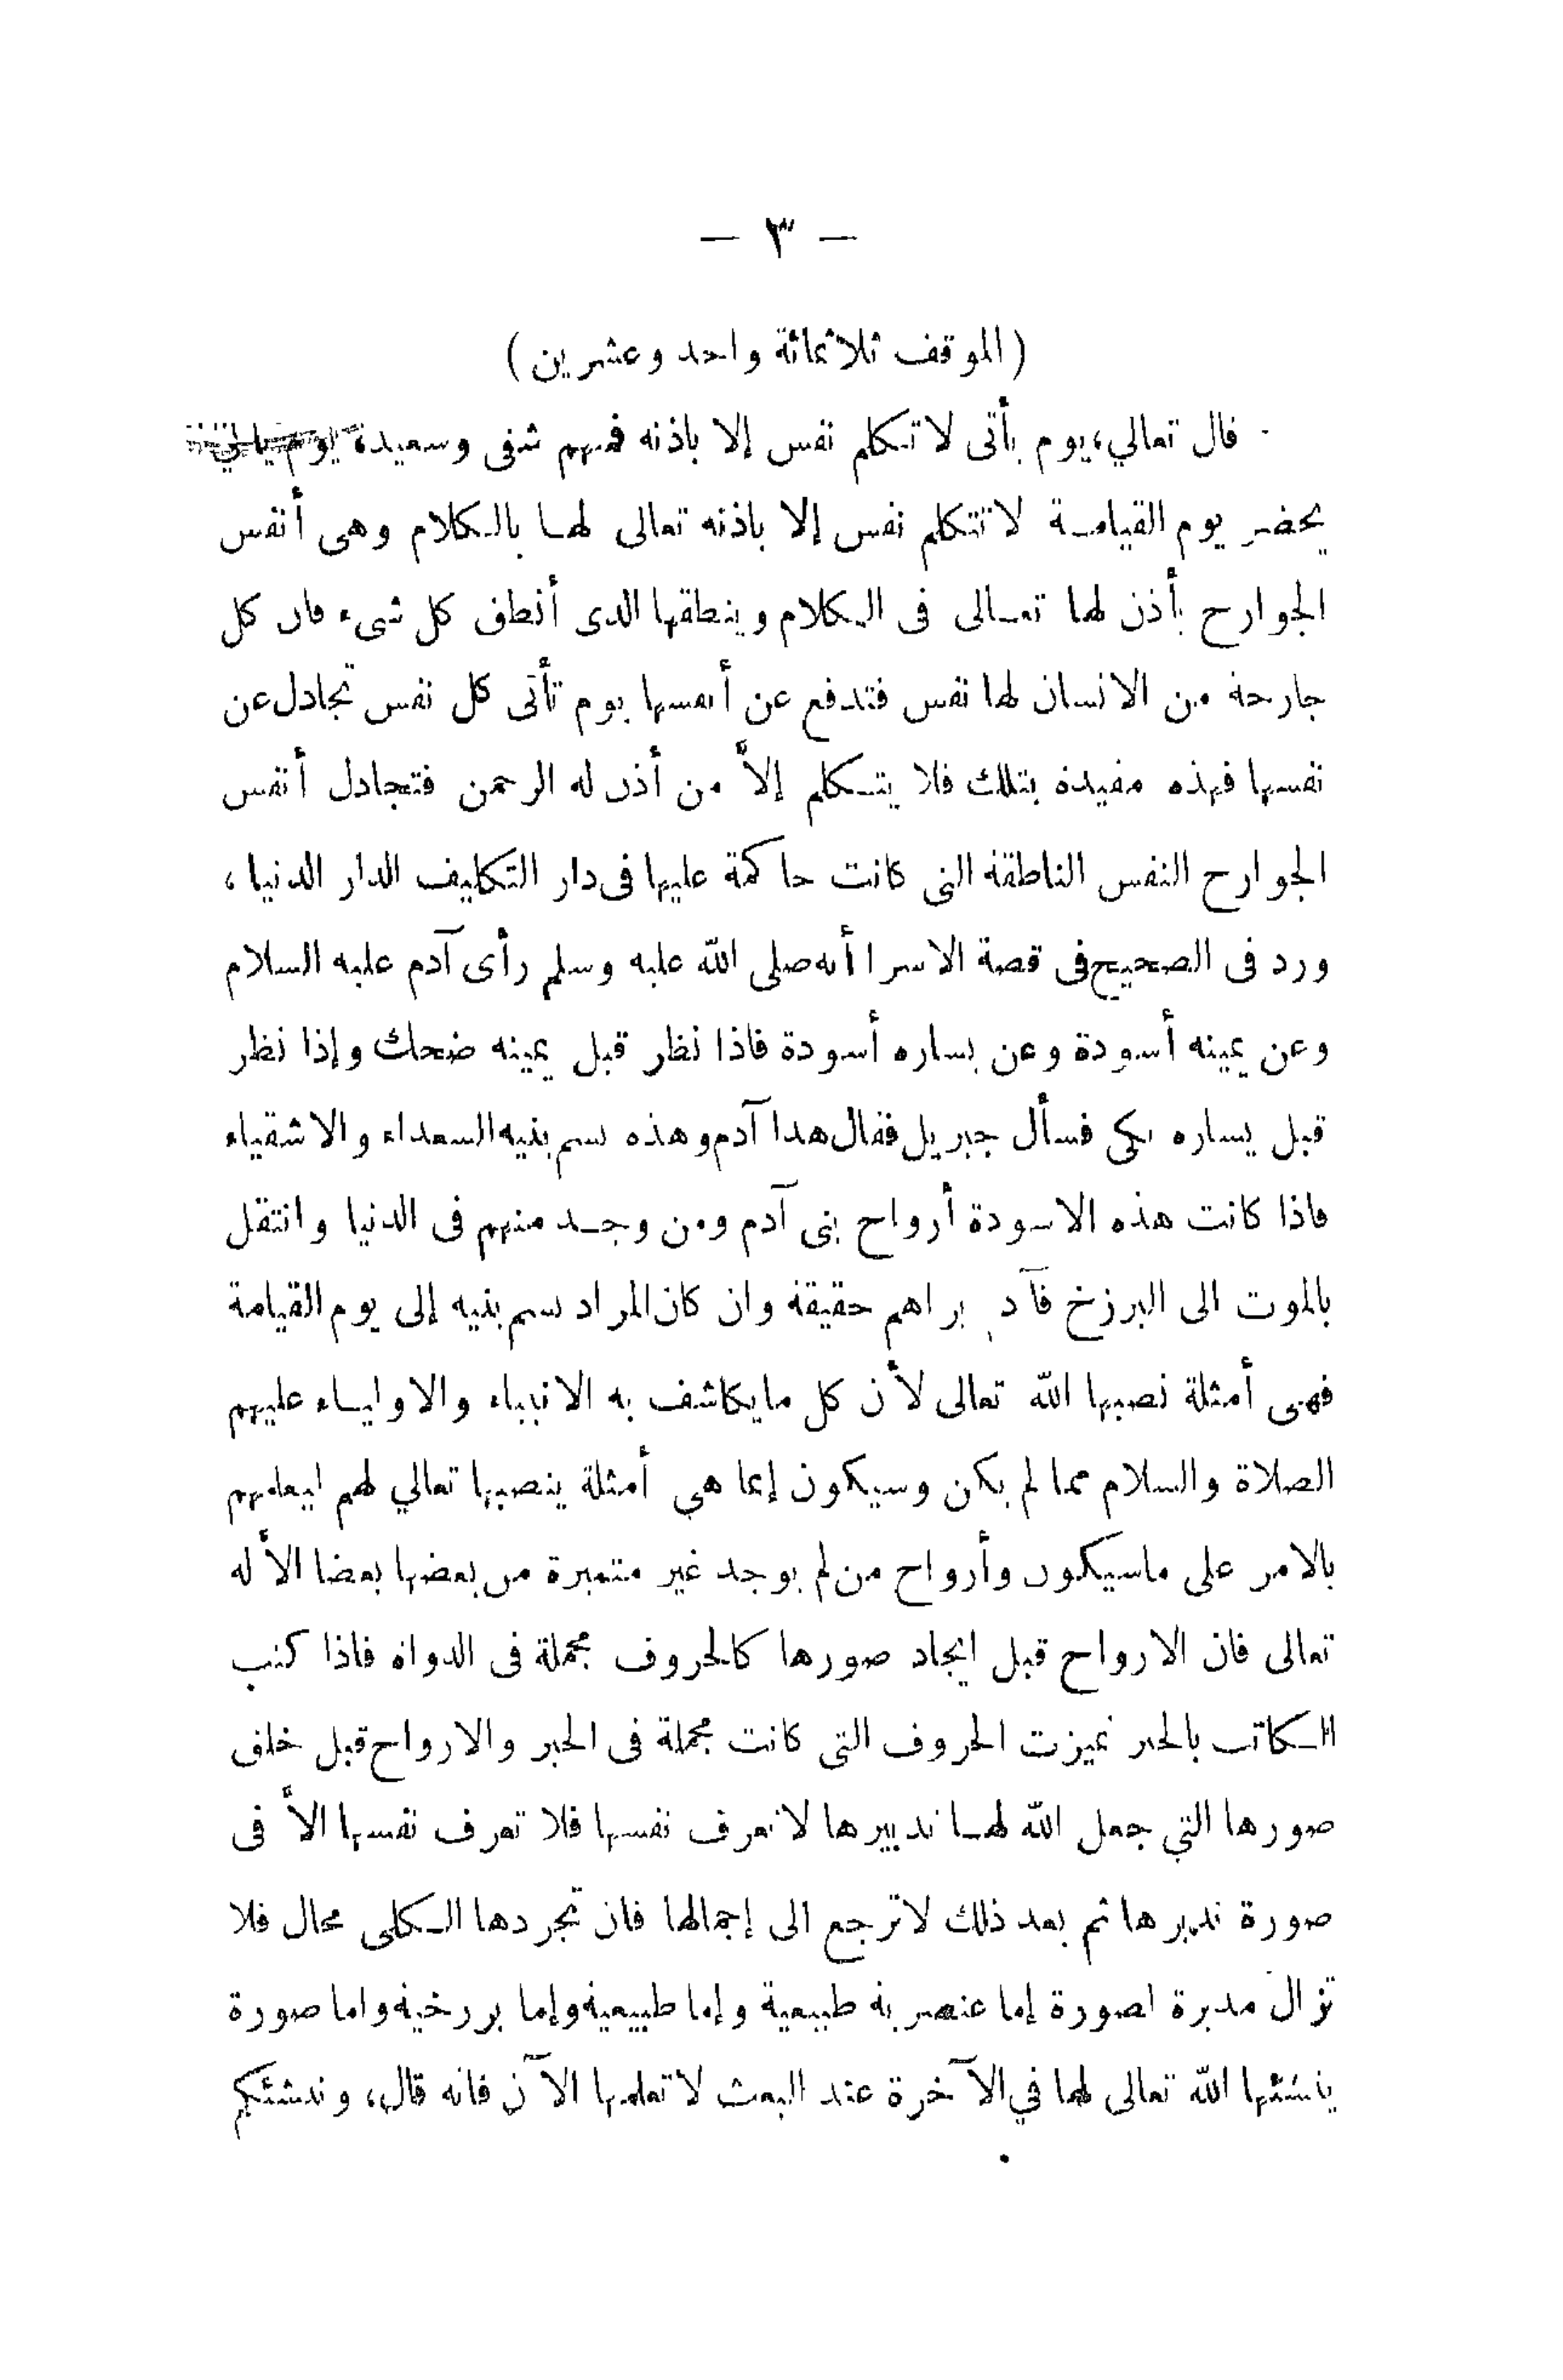 — ٣ —
(الموقف ثلاثمائة واحد وعشرين)
قال تعالي، يوم يأتى لا تكلم نفس إلا باذنه فمنهم شقى وسعيد، يوم يأتي
يحضر يوم القيامة لا تتكلم نفس إلا باذنه تعالى لها بالكلام وهى أنفس
الجوارح يأذن لها تعالى فى الكلام وينطقها الذى أنطق كل شىء فان كل
جارحة من الانسان لها نفس فتدفع عن أنفسها يوم تأتى كل نفس تجادل عن
نفسها فهذه مفيدة بتلك فلا يتكلم إلاَّ من أذن له الرحمن فتجادل أنفس
الجوارح النفس الناطقة التى كانت حاكمة عليها فى دار التكليف الدار الدنيا ،
ورد فى الصحيح فى قصة الاسرا أنه صلى الله عليه وسلم رأى آدم عليه السلام
وعن يمينه أسودة وعن يساره أسودة فاذا نظر قبل يمينه ضحك وإذا نظر
قبل يساره بكى فسأل جبريل فقال هذا آدم وهذه نسم بنيه السعداء والاشقياء
فاذا كانت هذه الاسودة أرواح بنى آدم ومن وجد منهم فى الدنيا وانتقل
بالموت الى البرزخ فآد يراهم حقيقة وان كان المراد نسم بنيه إلى يوم القيامة
فهى أمثلة نصبها الله تعالى لأن كل ما يكاشف به الانبياء والاولياء عليهم
الصلاة والسلام مما لم يكن وسيكون إنما هي أمثلة ينصبها تعالي لهم ليعلمهم
بالامر على ماسيكون وأرواح من لم يوجد غير متميزة من بعضها بعضا الاَّ له
تعالى فان الارواح قبل ايجاد صورها كالحروف مجملة فى الدواة فاذا كتب
الكاتب بالحبر تميزت الحروف التى كانت مجملة فى الحبر والارواح قبل خلق
صورها التي جعل الله لها تدبيرها لا تعرف نفسها فلا تعرف نفسها الاَّ فى
صورة تدبرها ثم بعد ذلك لا ترجع الى إجمالها فان تجردها الكلى محال فلا
تزال مدبرة لصورة إما عنصرية طبيعية وإما طبيعية وإما برزخية واما صورة
ينشئها الله تعالى لها في الآخرة عند البعث لا تعلمها الآن فانه قال، وننشئكم